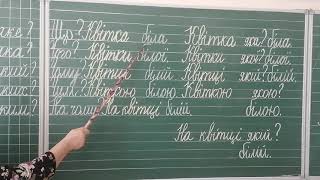 чке? Що? Квітка біла Квітка яка? біла.
ка? Чого? Квітки білої Квітки якої? білої.
кій? Чому? Квітці білій Квітці якій? білій.
Чим? Квіткою білою Квіткою якою?
ким? На чому? На квітці білій білою.
На квітці якій?
білій.